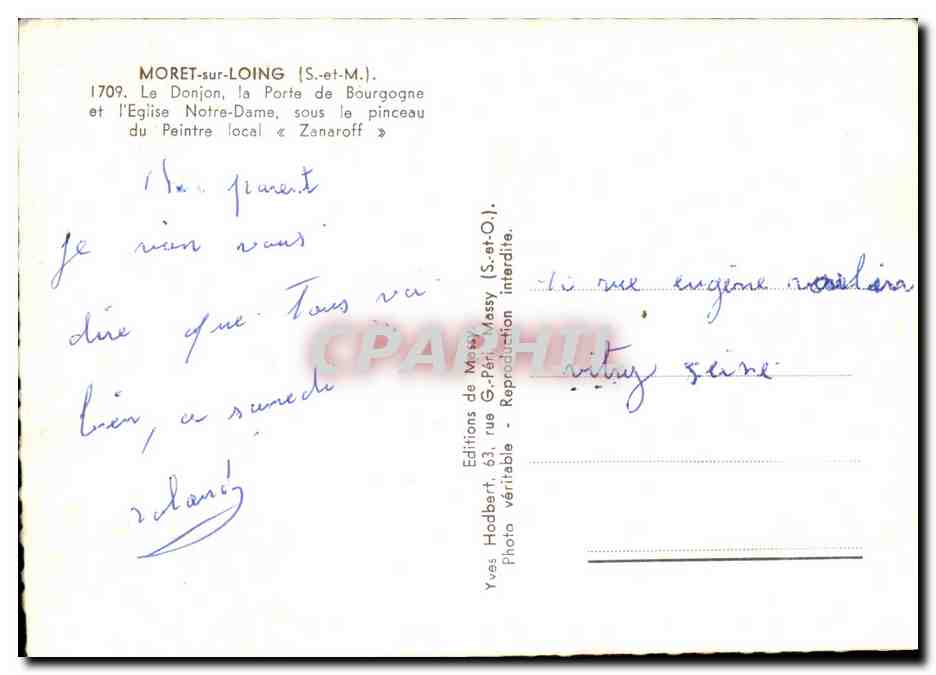 MORET-sur-LOING (S.-et-M.).
1709. Le Donjon, la Porte de Bourgogne
et l'Eglise Notre-Dame, sous le pinceau
du Peintre local « Zanaroff »
parent
je vien vous
dire que tous va
bien, a samedi
roland
rue eugène
vitry seine
Editions de Massy
Yves Hodbert, 63, rue G.-Péri, Massy (S.-et-O.).
Photo véritable - Reproduction interdite.
CPAPHIL